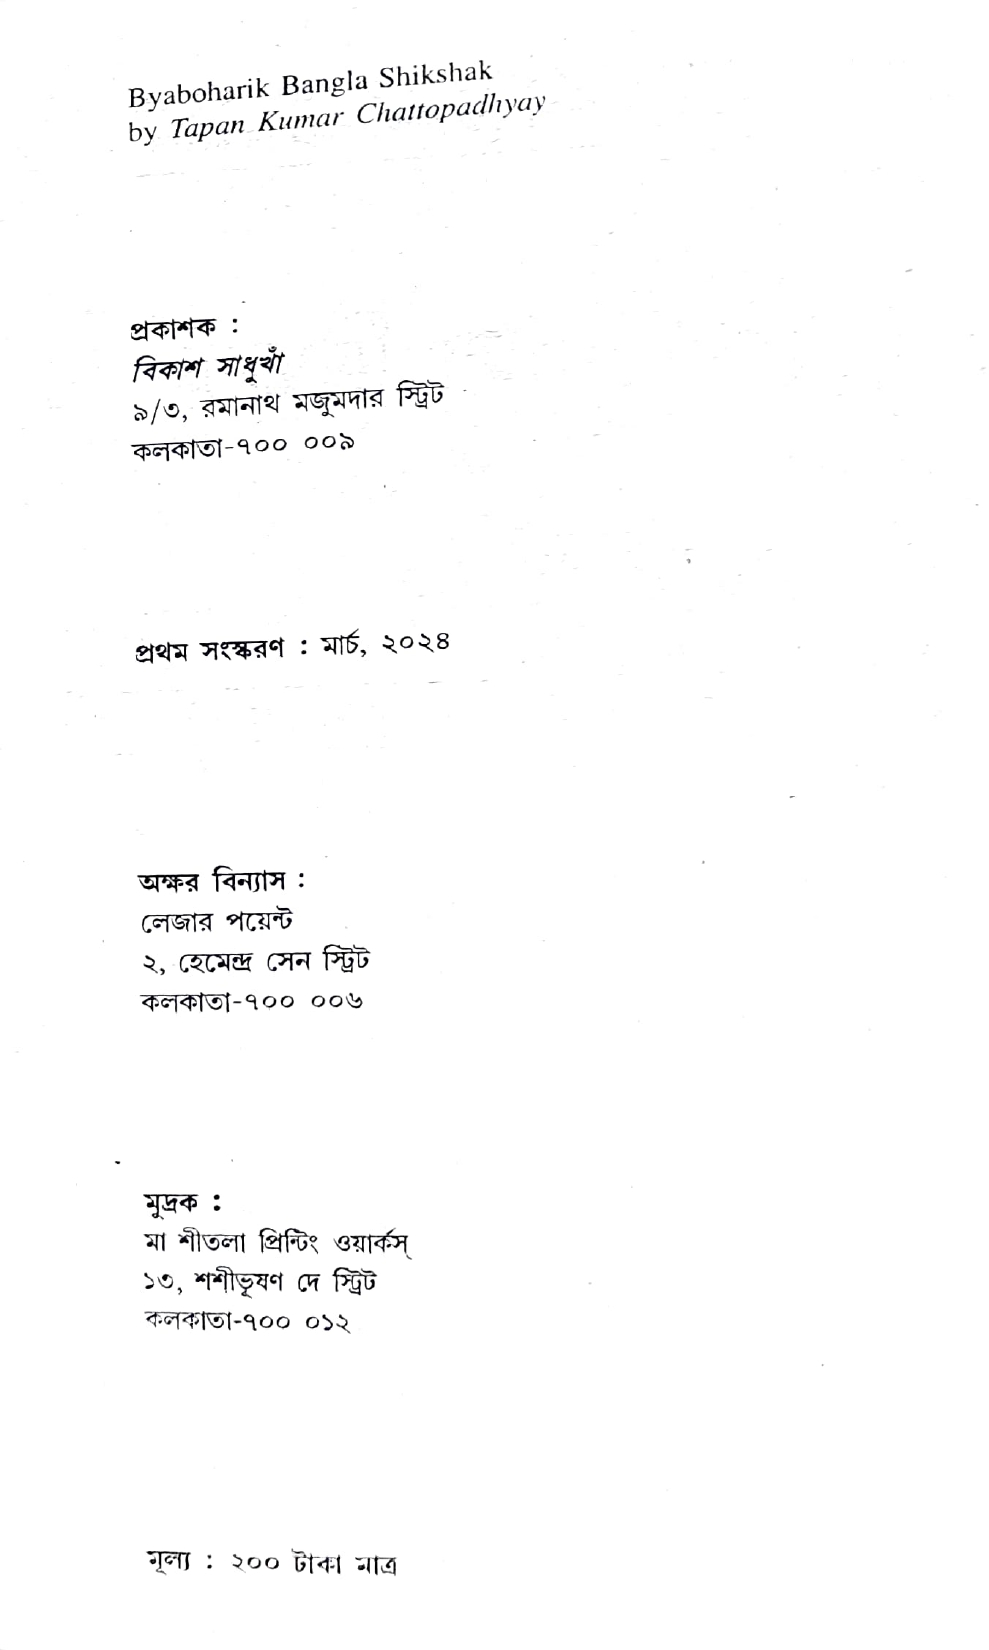 Byaboharik Bangla Shikshak
by Tapan Kumar Chattopadhyay
প্রকাশক :
বিকাশ সাধুখাঁ
৯/৩, রমানাথ মজুমদার স্ট্রিট
কলকাতা-৭০০ ০০৯
প্রথম সংস্করণ : মার্চ, ২০২৪
অক্ষর বিন্যাস :
লেজার পয়েন্ট
২, হেমেন্দ্র সেন স্ট্রিট
কলকাতা-৭০০ ০০৬
মুদ্রক :
মা শীতলা প্রিন্টিং ওয়ার্কস্
১৩, শশীভূষণ দে স্ট্রিট
কলকাতা-৭০০ ০১২
মূল্য : ২০০ টাকা মাত্র